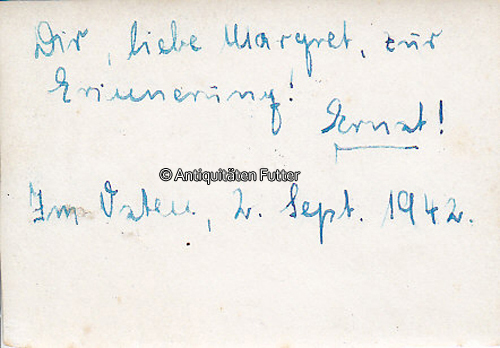 Dir, liebe Margret, zur
Erinnerung!
Ernst!
© Antiquitäten Futter
Im Osten, 2. Sept. 1942.